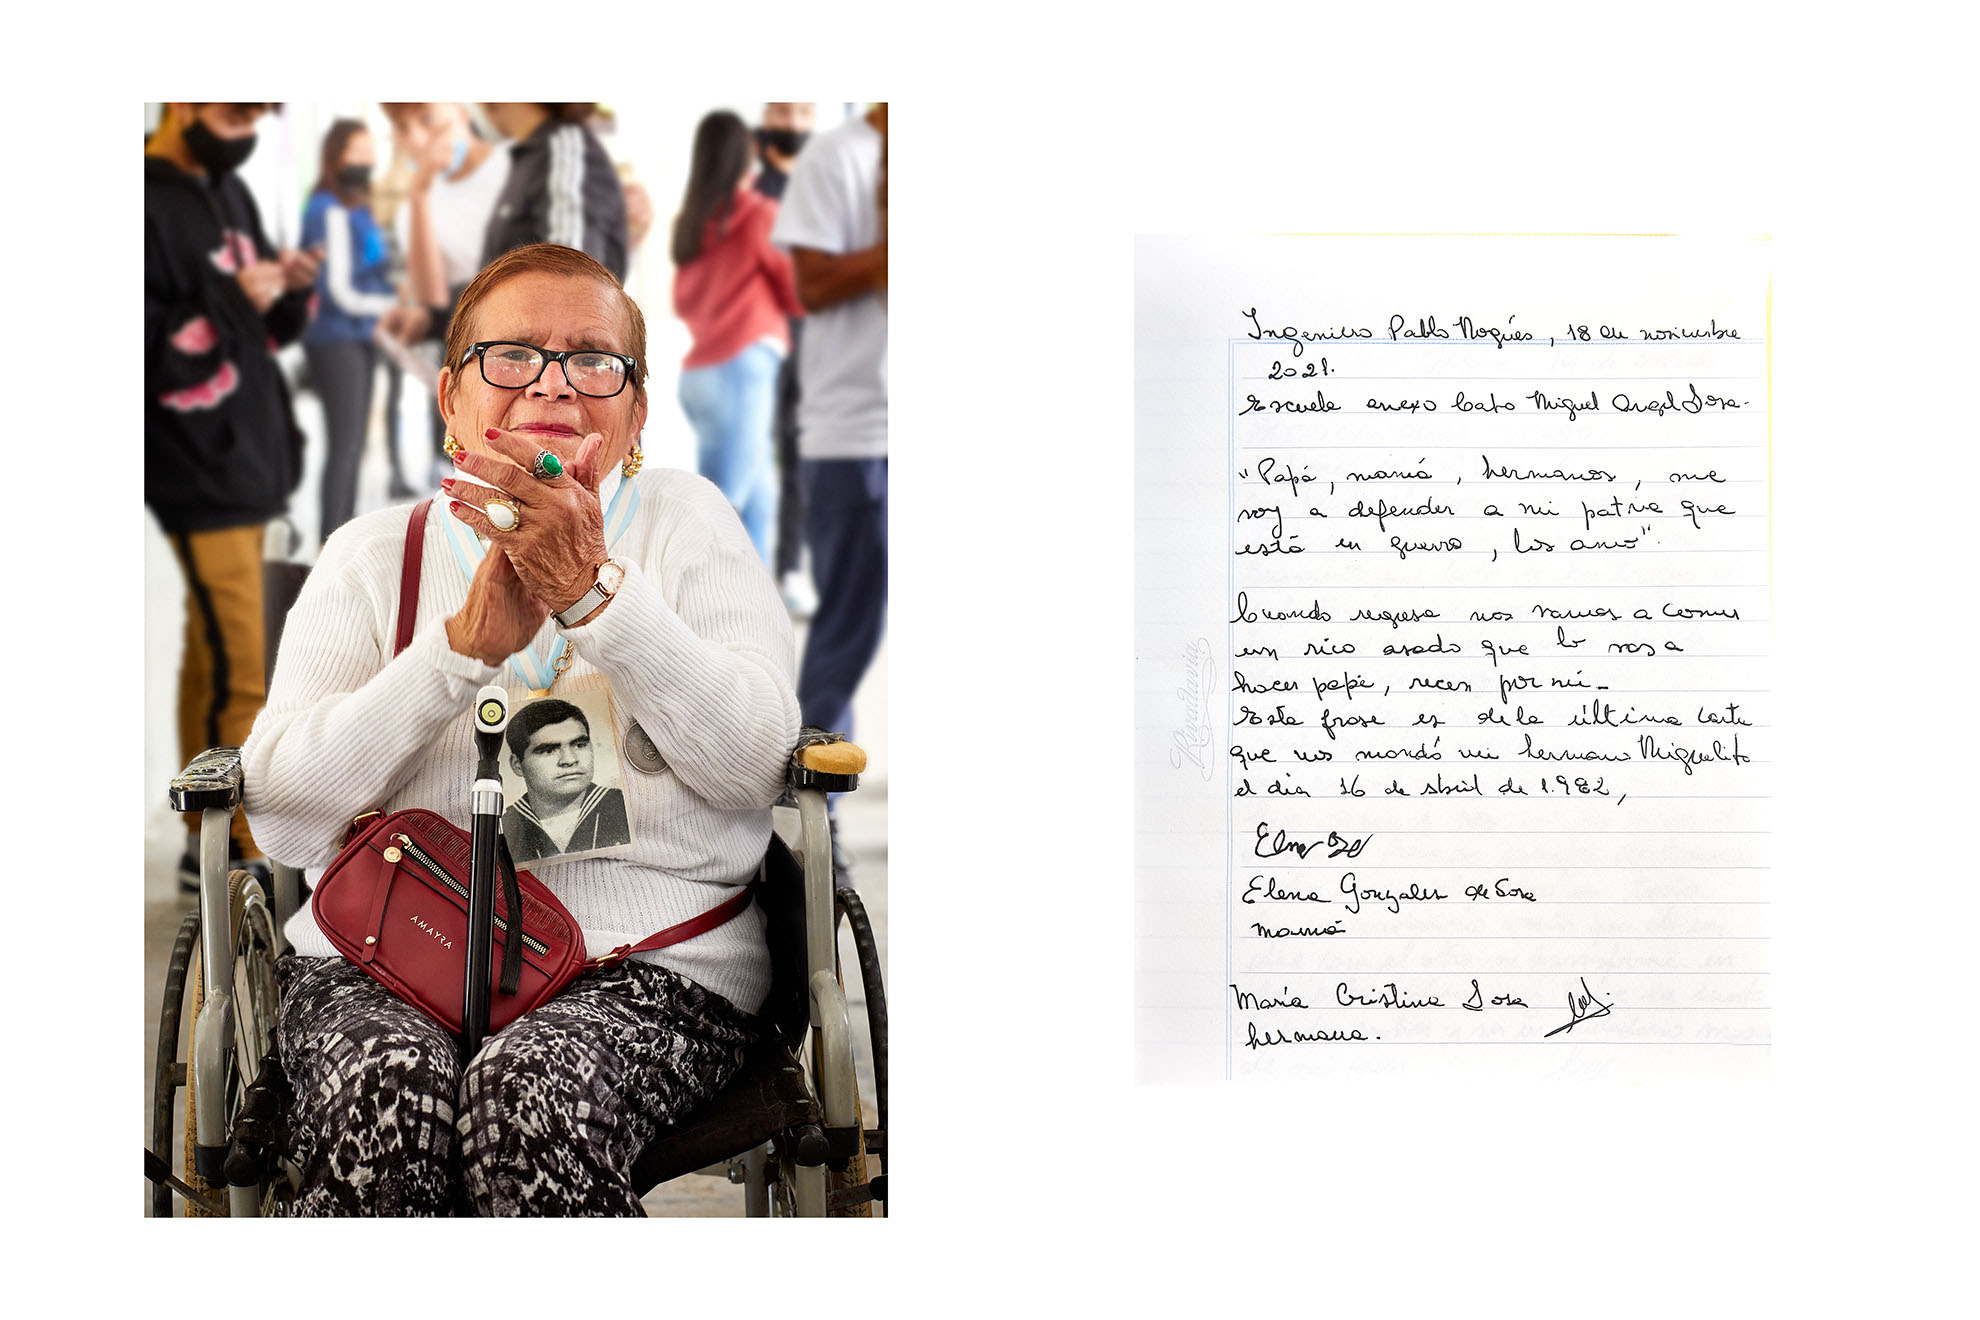 AMAYRA
Ingeniero Pablo Nogués, 18 de noviembre
2021.
Escuela anexo Cabo Miguel Angel Sosa.
"Papá, mamá, hermanos, me
voy a defender a mi patria que
está en guerra, los amo".
Cuando regrese nos vamos a comer
un rico asado que lo vas a
hacer papá, recen por mi_
Esta frase es de la última carta
que nos mandó mi hermano Miguelito
el dia 16 de abril de 1.982,
Elena Gonzalez de Sosa
mamá
María Cristina Sosa
hermana.
Rivadavia